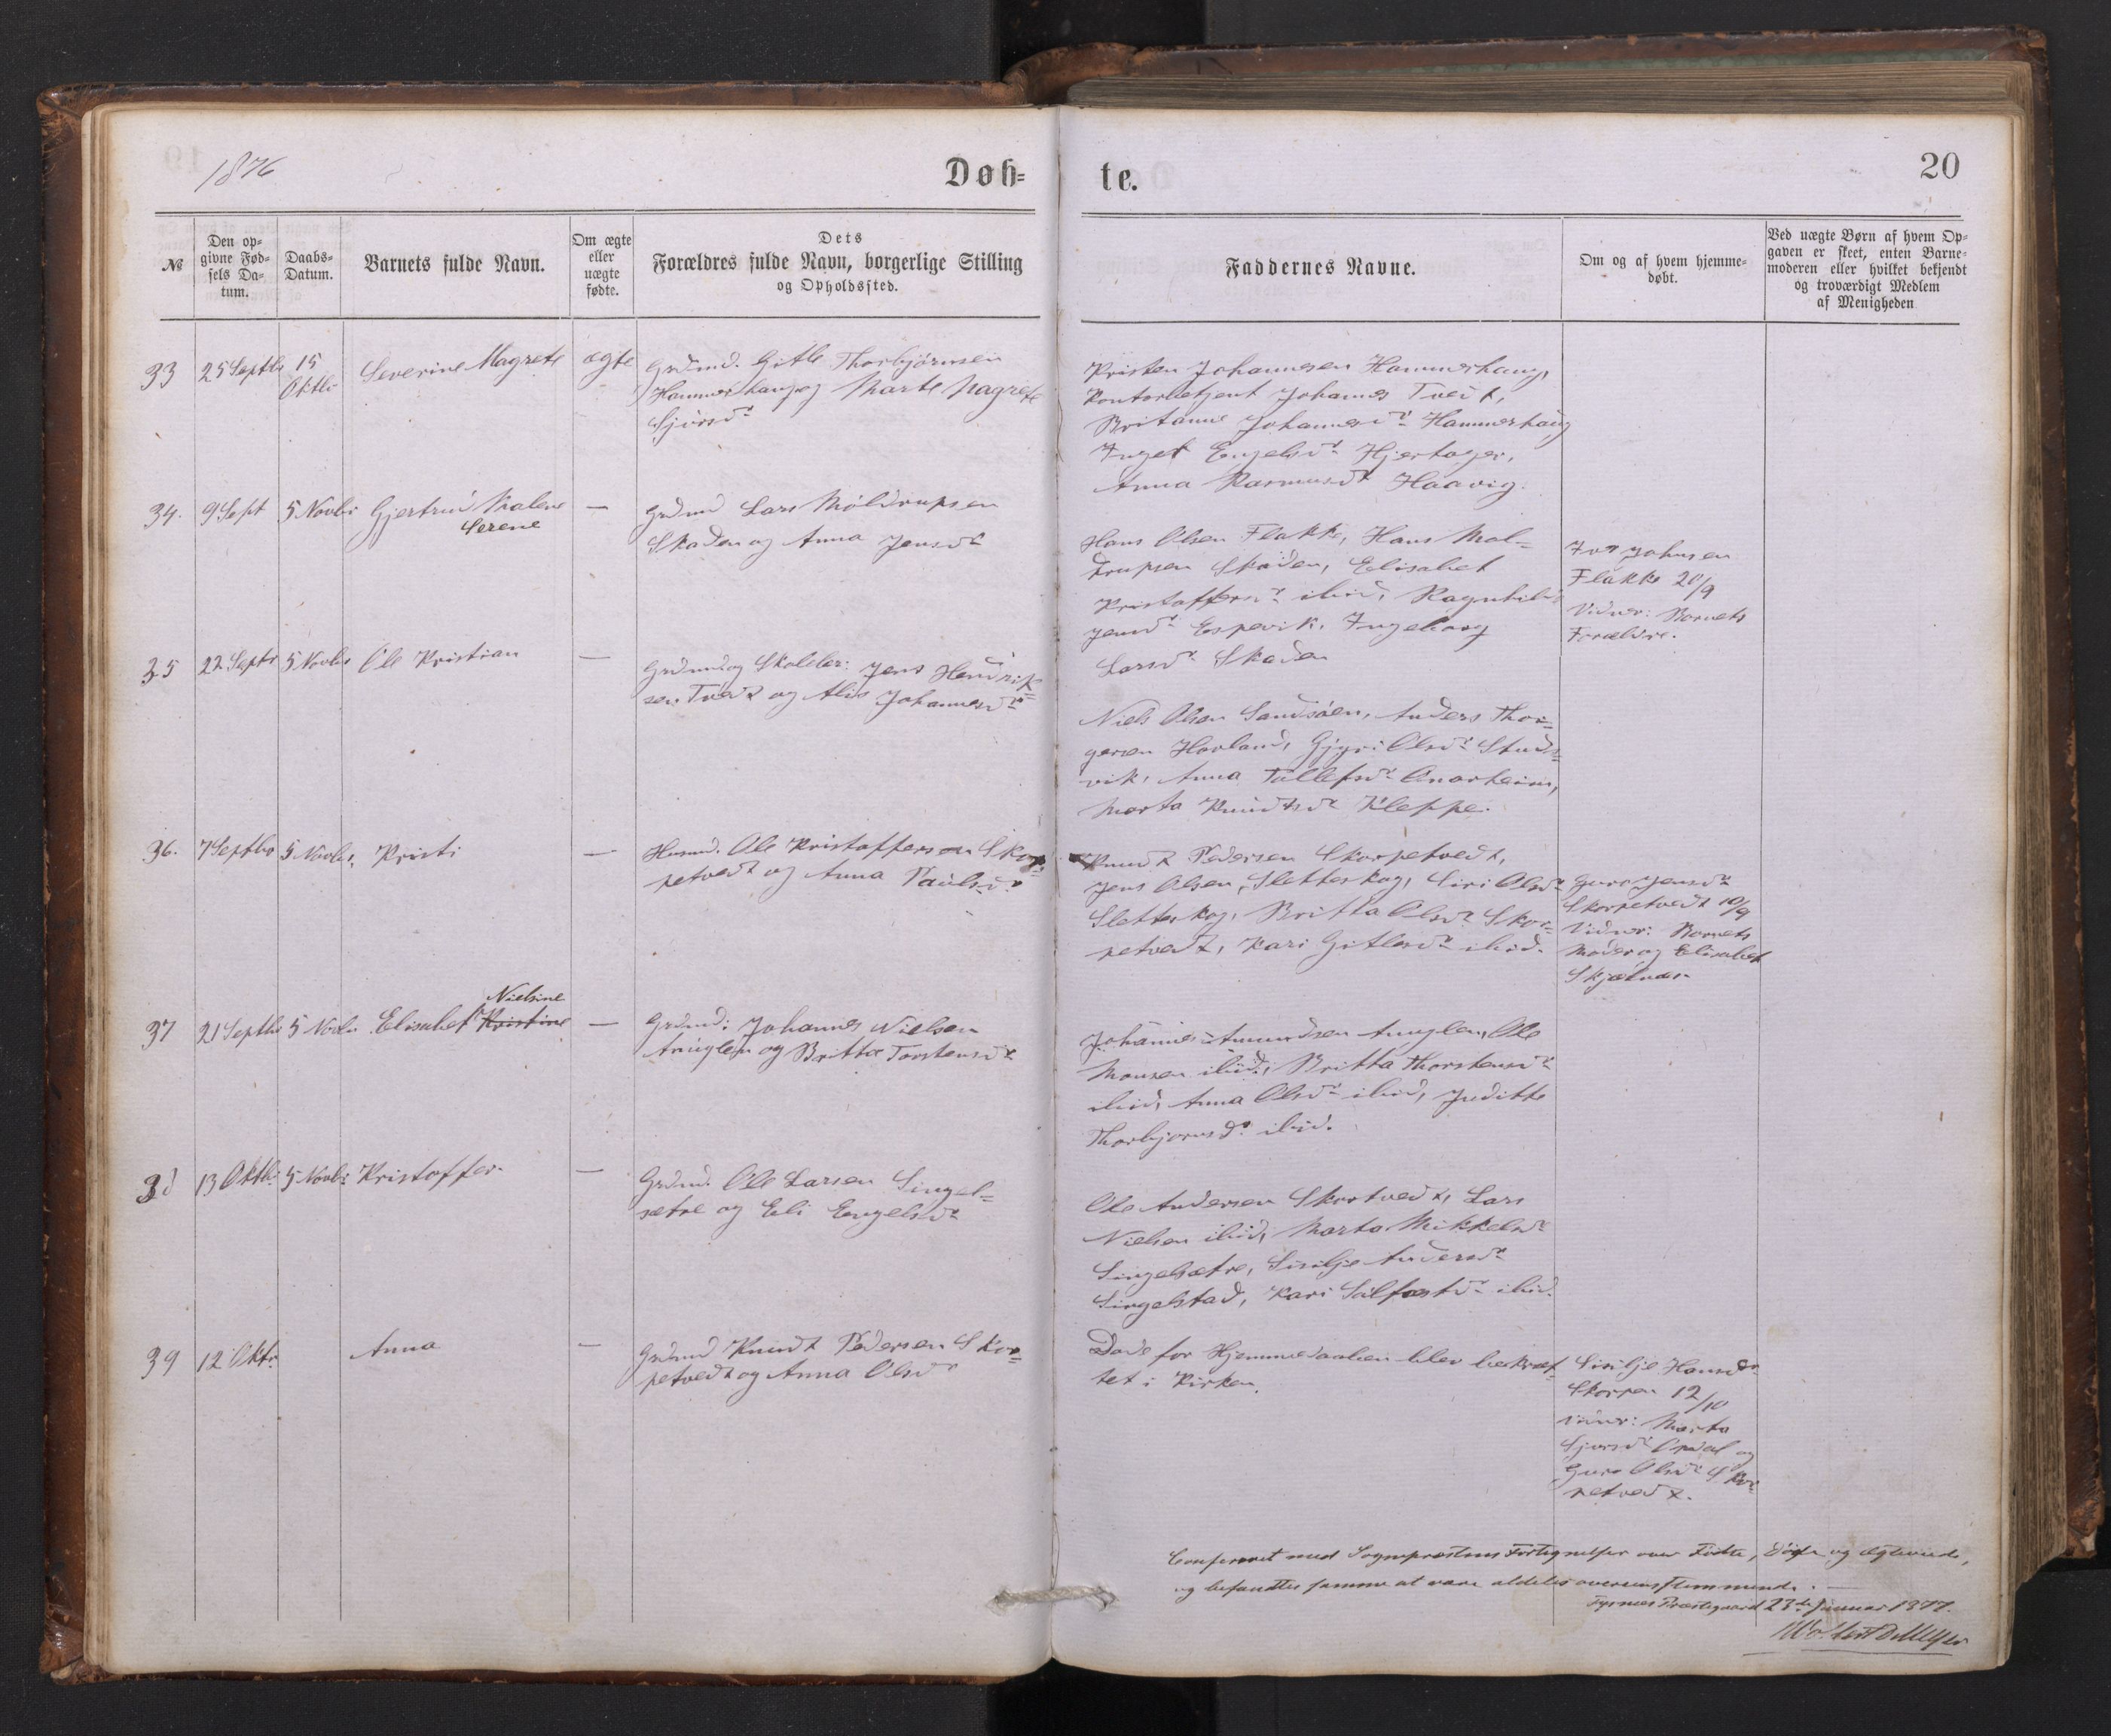 1876
Døb=
te.
20
№
Den op=
givne Fød=
sels Da=
tum.
Daabs=
Datum.
Barnets fulde Navn.
Om ægte
eller
uægte
fødte.
Dets
Forældres fulde Navn, borgerlige Stilling
og Opholdssted.
Faddernes Navne.
Om og af hvem hjemme=
døbt.
Ved uægte Børn af hvem Op=
gaven er skeet, enten Barne=
moderen eller hvilket bekjendt
og troværdigt Medlem
af Menigheden
33 25 Septbr 15
Oktbr
Severine Magrete
ægte
Grdmd. Gitle Thorbjørnsen
Hammerhaug og Marte Magrete
Sjursdr
Kristen Johannesen Hammerhaug,
Kontorbetjent Johannes Tveit,
Britanne Johannesdr Hammerhaug
Inget Engelsdr Hjertager,
Anna Rasmusdr Haavig.
34. 9 Sept 5 Novbr Gjertrud Malene
Serene
—
Grdmd Lars Moldrupsen
Skaden og Anna Jensdr
Hans Olsen Flakke, Hans Mol=
drupsen Skaden, Elisabet
Kristoffersdr ibid, Ragnhild
Jensdr Espevik, Ingeborg
Larsdr Skaden
Johnsen
Flakke 20/9
Vidner: Barnets
Forældre.
35 22 Septr 5 Novbr Ole Kristian
—
Grdmd og Skoleler: Jens Henrik=
sen Tvedt og Alis Johannesdr
Niels Olsen Sandsøen, Anders Thor=
gersen Hovland, Gjyri Olsdr Studs=
vik, Anna Tollefsdr Onarheim,
Marta Knudtsdr Kleppe.
36. 7 Septbr 5 Novbr. Kristi
—
Husmd. Ole Kristoffersen Skor=
petvedt og Anna Paulsdr
Knudt Pedersen Skorpetvedt,
Jens Olsen, Sletteskog, Siri Olsdr
Sletteskog, Britta Olsdr Skor=
petvedt, Kari Gitlesdr ibid.
Guro Jensdr
Skorpetvedt 10/9
Vidner: Barnets
Moder og Elisabet
Skjælnes
37 21 Septbr 5 Novbr Elisabet Kristine
Nielsine
—
Grdmd: Johannes Nielsen
Anuglen og Britta Torstensdr
Johannes Amundsen Anuglen, Ole
Monsen ibid, Britta Thorstensdr
ibid, Anna Olsdr ibid, Juditte
Thorbjornsdr ibid.
38 13 Oktbr 5 Novbr Kristoffer
—
Grdmd. Ole Larsen Singel=
sætre og Eli Engelsdr
Ole Andersen Skortvedt, Lars
Nielsen ibid, Marta Mikkelsdr
Singelsætre, Sisilje Andersdr
Singelstad, Kari Salfæstdr ibid.
39 12 Oktr Anna
—
Grdmd Knudt Pedersen Skor=
petvedt og Anna Olsdr
Døde før Hjemmedaaben blev bekræf=
tet i Kirken.
Sisilje Hansdr
Skorpen 12/10
Vidner: Marta
Sjursdr Opdal og
Guro Olsdr Skor=
petvedt.
Confereret med Sognepræstens Fortegnelser over Fødte, Døde og Ægteviede,
og befandtes samme at være aldeles overensstemmende. —
Tysnes Præstegaard 23de Januar 1877.